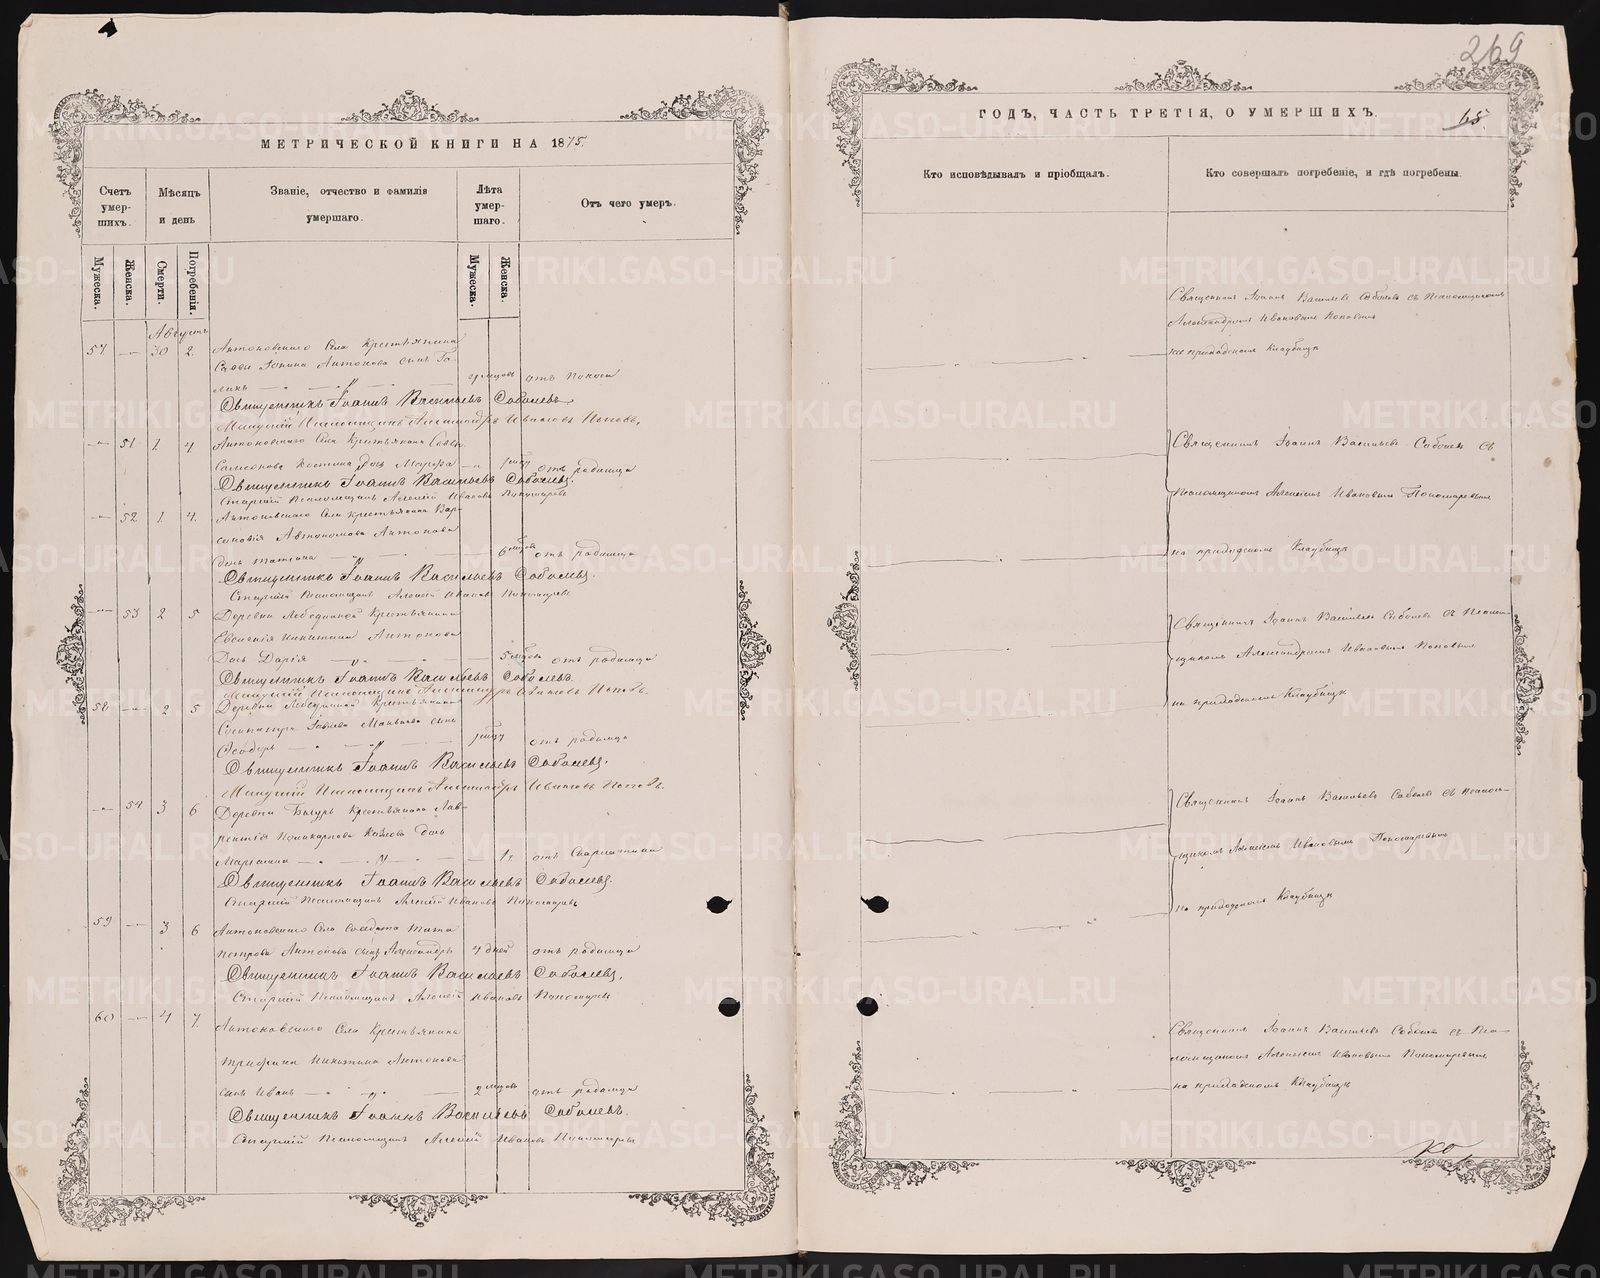 269
МЕТРИЧЕСКОЙ КНИГИ НА 1875
ГОДЪ, ЧАСТЬ ТРЕТІЯ, О УМЕРШИХЪ.
68
Счетъ умер-шихъ.
Мѣсяцъ и день
Званіе, отчество и фамилія умершаго.
Лѣта умер-шаго.
Отъ чего умеръ.
Кто исповѣдывалъ и пріобщалъ.
Кто совершалъ погребеніе, и гдѣ погребены.
Мужеска.
Женска.
Смерти.
Погребенія.
Мужеска.
Женска.
Августъ
57 30 2. Антоновскаго Села Крестьянина
Антонова сынъ
отъ поноса
Священникъ Іоаннъ Васильевъ Соболевъ
Младшій Псаломщикъ Александръ Ивановъ Поповъ.
Священникъ Іоаннъ Васильевъ Соболевъ съ Псаломщикомъ
Александромъ Ивановымъ Поповымъ
на приходскомъ Кладбищѣ
51 1. 4 Антоновскаго Села Крестьянина Саввы
дочь отъ родимца
Священникъ Іоаннъ Васильевъ Соболевъ.
Старшій Псаломщикъ Алексій Ивановъ Пономаревъ
Священникъ Іоаннъ Васильевъ Соболевъ съ
Псаломщикомъ Алексіемъ Ивановымъ Пономаревымъ
на приходскомъ Кладбищѣ
52 1. 4. Антоновскаго Села Крестьянина Вар-
Автономова Антонова
дочь Татіана 6 отъ родимца
Священникъ Іоаннъ Васильевъ Соболевъ.
Старшій Псаломщикъ Алексій Ивановъ Пономаревъ
53 2 5 Деревни Лебедкиной Крестьянина
Евсенія Никитина Антонова
Дочь Дарія 5 отъ родимца
Священникъ Іоаннъ Васильевъ Соболевъ.
Младшій Псаломщикъ Александръ Ивановъ Поповъ.
Священникъ Іоаннъ Васильевъ Соболевъ съ Псалом-
щикомъ Александромъ Ивановымъ Поповымъ
на приходскомъ Кладбищѣ
58 2 5 Деревни Лебедкиной Крестьянина
сынъ
Ѳеодоръ отъ родимца
Священникъ Іоаннъ Васильевъ Соболевъ.
Младшій Псаломщикъ Александръ Ивановъ Поповъ.
54 3 6 Деревни Крестьянина Лав-
рентія Поликарпова Козлова дочь
Маріамна 1 г. отъ Скарлатины
Священникъ Іоаннъ Васильевъ Соболевъ.
Старшій Псаломщикъ Алексій Ивановъ Пономаревъ
Священникъ Іоаннъ Васильевъ Соболевъ съ Псалом-
щикомъ Алексіемъ Ивановымъ Пономаревымъ
на приходскомъ Кладбищѣ
59 3 6 Антоновскаго Села Солдата Тита
Петрова Антонова сынъ Александръ 4 дней отъ родимца
Священникъ Іоаннъ Васильевъ Соболевъ.
Старшій Псаломщикъ Алексій Ивановъ Пономаревъ
60 4 7. Антоновскаго Села Крестьянина
Трифона Никитина Антонова
сынъ Иванъ 2 отъ родимца
Священникъ Іоаннъ Васильевъ Соболевъ.
Старшій Псаломщикъ Алексій Ивановъ Пономаревъ
Священникъ Іоаннъ Васильевъ Соболевъ съ Пса-
ломщикомъ Алексіемъ Ивановымъ Пономаревымъ
на приходскомъ Кладбищѣ
METRIKI.GASO-URAL.RU